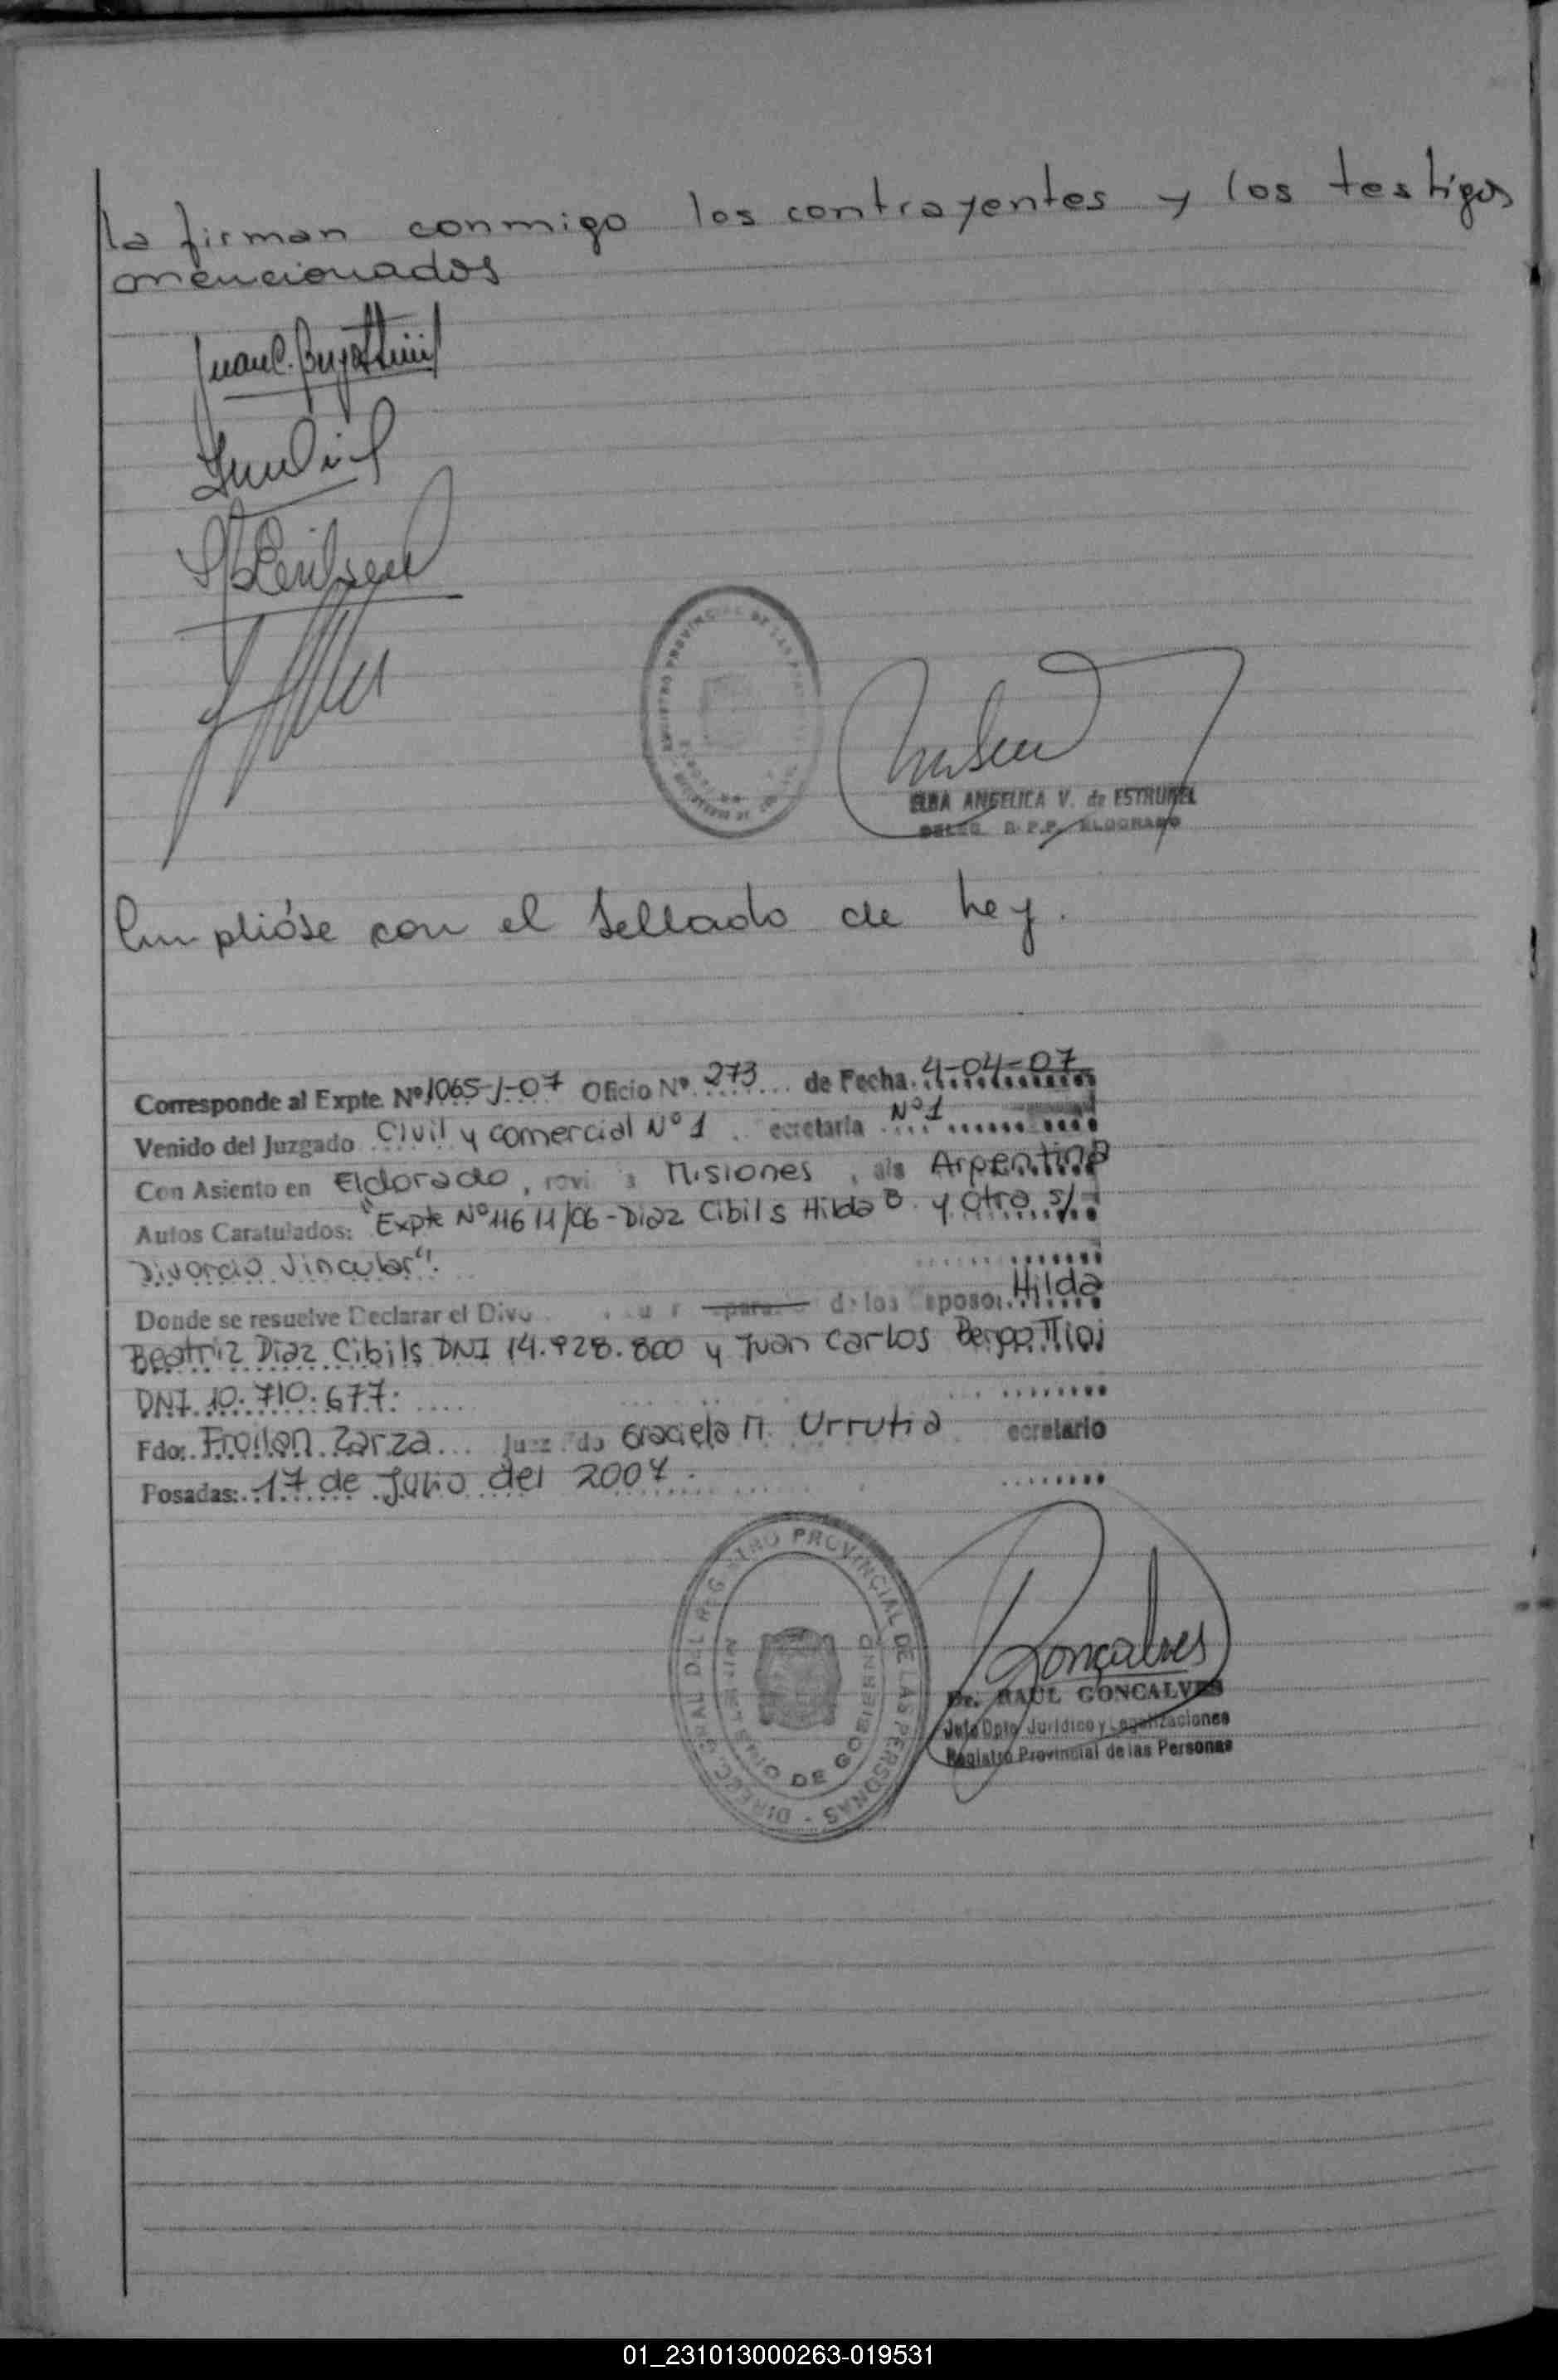 la firman conmigo los contrayentes y los testigos
mencionados
ELBA ANGELICA V. de ESTRUBEL
DELEG. R.P.P. ELDORADO
Cumplióse con el Sellado de Ley.
Corresponde al Expte. Nº 1065-J-07 Oficio Nº 273 de Fecha 4-04-07
Venido del Juzgado Civil y comercial Nº 1 ecretaria Nº 1
Con Asiento en Eldorado, rovi a Misiones, Argentina
Autos Caratulados: "Expte Nº 11611/06-Diaz Cibils Hilda B. y otro s/
Divorcio Vincular".
Donde se resuelve Declarar el Divo de los esposos Hilda
Beatriz Diaz Cibils DNI 14.928.800 y Juan Carlos
DNI 10.710.677.
Fdo: Froilan Zarza Juez Graciela M. Urrutia ecretario
Posadas: 17 de Julio del 2007.
DIRECC. GRAL DEL REGISTRO PROVINCIAL DE LAS PERSONAS
MINISTERIO DE GOBIERNO
Goncalves
Dr. RAUL GONCALVES
Jefe Dpto. Jurídico y Legalizaciones
Registro Provincial de las Personas
01_231013000263-019531